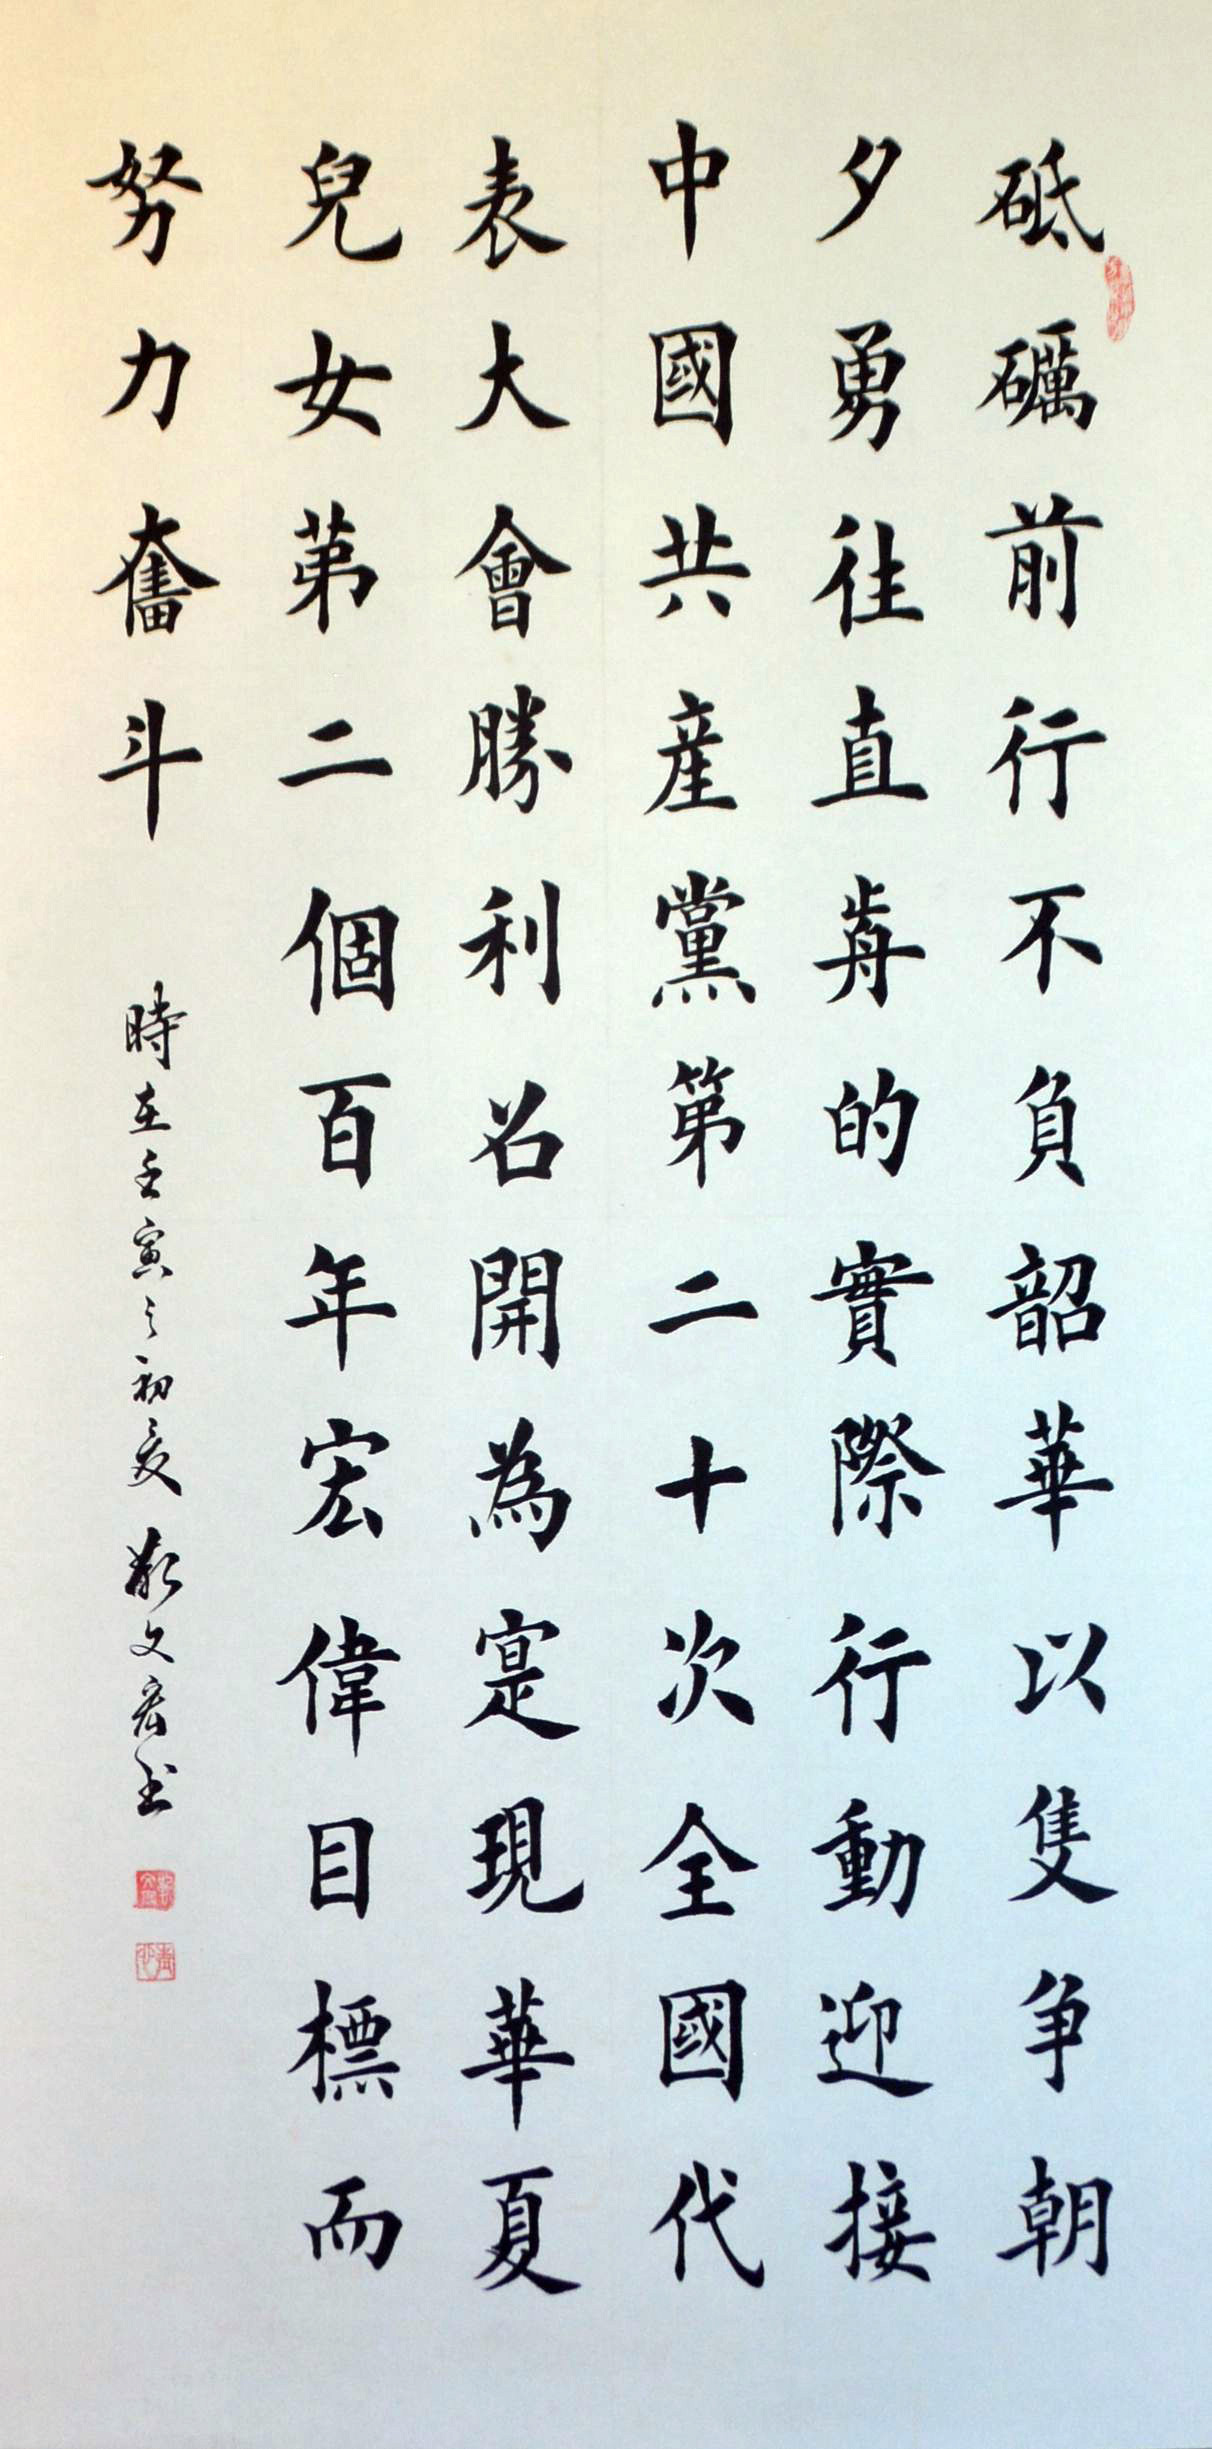 砥礪前行不負韶華以隻争朝
夕勇往直歬的實際行動迎接
中國共産黨第二十次全國代
表大會勝利召開為寔現華夏
兒女苐二個百年宏偉目標而
努力奮斗
時在壬寅之初夏 文宏书